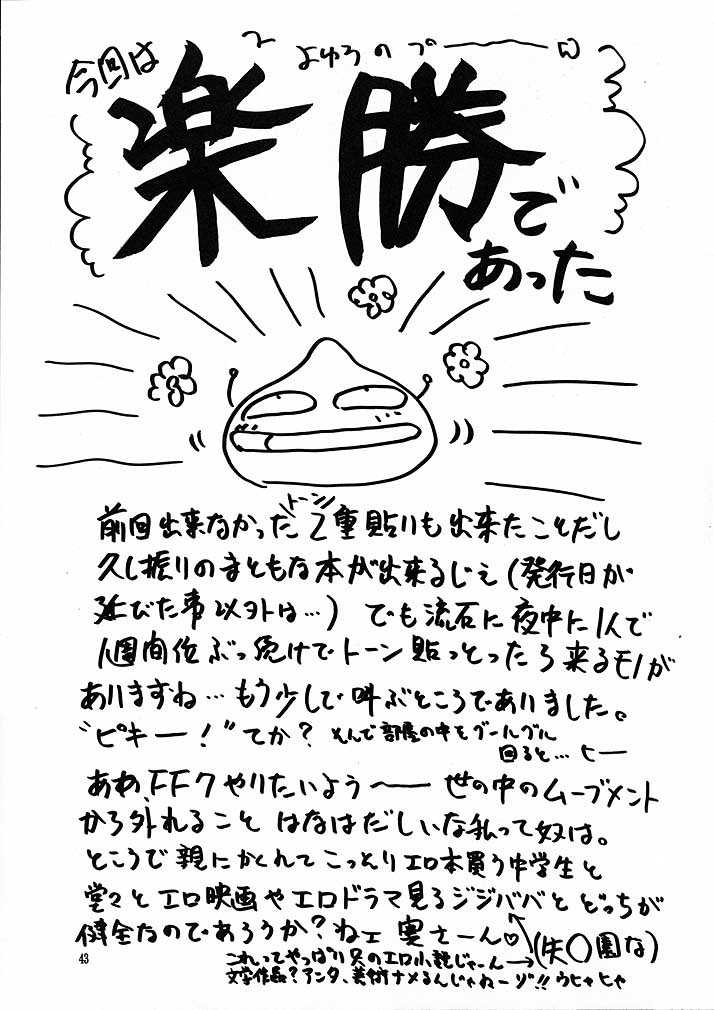 今回は
よゆうのプーーーー
楽勝で
あった
トーン
前回出来なかった2重貼りも出来たことだし
久し振りのまともな本が出来るじぇ(発行日が
延びた事以外は…)でも流石に夜中に1人で
1週間位ぶっ続けでトーン貼っとったら来るモノが
ありますね…もう少しで叫ぶところでありました。
"ピキー!"てか?そんで部屋の中をグールグル
回ると…ヒー
ああ、FF7やりたいよう〜ー世の中のムーブメント
から外れることはなはだしいな私って奴は。
ところで親にかくれてこっそりエロ本買う中学生と
堂々とエロ映画やエロドラマ見るジジババとどっちが
健全なのであろうか?ねェ奥さーん♡(失〇園な)
これってやっぱり只のエロ小説じゃーん→
文学作品?アンタ、美術ナメるんじゃねーゾ!!ウヒャヒャ
43